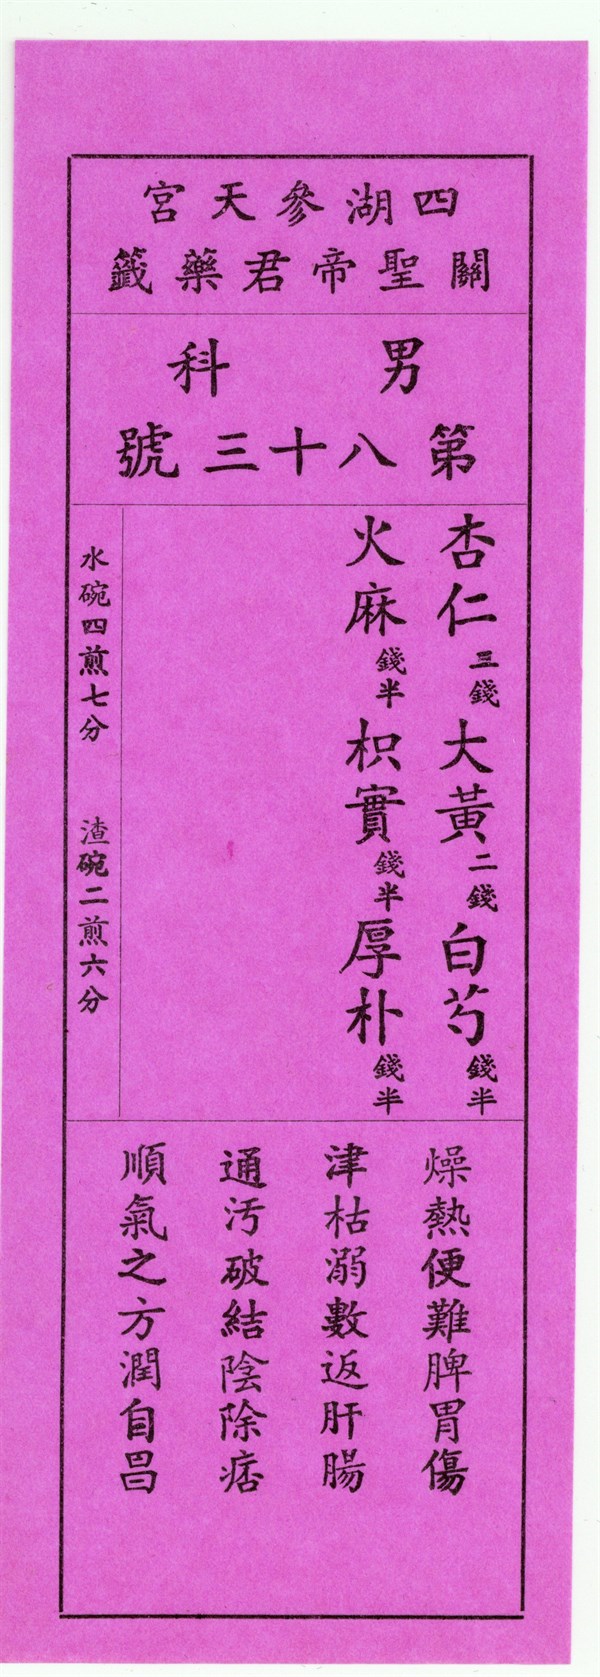 四湖參天宮
關聖帝君藥籤
男科
第八十三號
杏仁三錢大黃二錢白芍錢半
火麻錢半枳實錢半厚朴錢半
水碗四煎七分　渣碗二煎六分
燥熱便難脾胃傷
津枯溺數返肝腸
通污破結陰除痞
順氣之方潤自昌